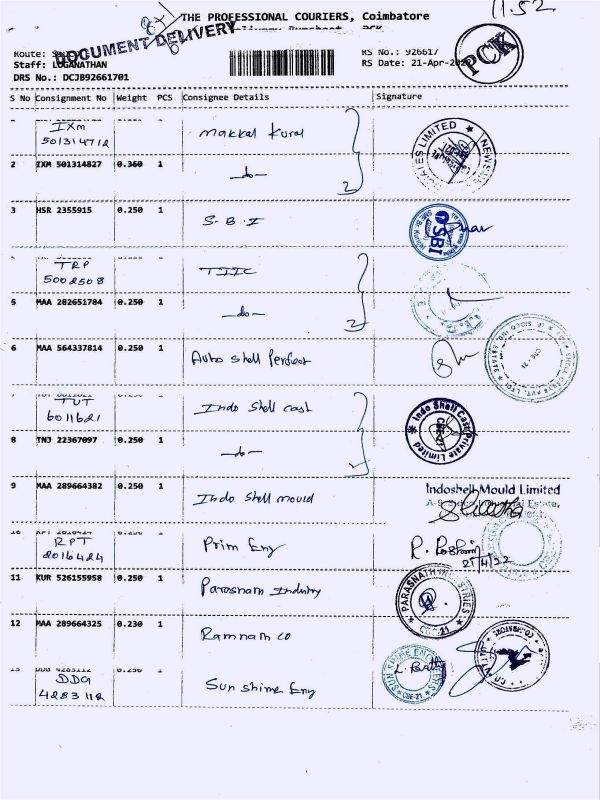 11.52
THE PROFESSIONAL COURIERS, Coimbatore
DOCUMENT DELIVERY
PCK
Route:
RS No.: 926617
Staff: LOGANATHAN
RS Date: 21-Apr-2022
DRS No.: DCJB92661701
S No Consignment No Weight PCS Consignee Details Signature
IXM
501314712 Makkal Kural
2 IXM 501314827 0.360 1 -do- 2
3 HSR 2355915 0.250 1 S.B.I
SBI
TRP
5002508 TIIC
5 MAA 282651784 0.250 1 -do- 2
6 MAA 564337814 0.250 1 Auto Shell Perfect
TUT
6011621 Indo Shell Cast
Indo Shell Cast Private Limited
CBE-21
8 TNJ 22367097 0.250 1 -do- 2
9 MAA 289664382 0.250 1 Indo Shell mould
Indoshell Mould Limited
RPT
2016424 Prim Eng
21/4/22
11 KUR 526155958 0.250 1 Parasnath Industry
PARASNATH INDUSTRIES
CBE-21
12 MAA 289664325 0.230 1 Ramnath co
DDG
4283112 Sun Shime Eng
SUN SHINE ENGINEERS
CBE-21